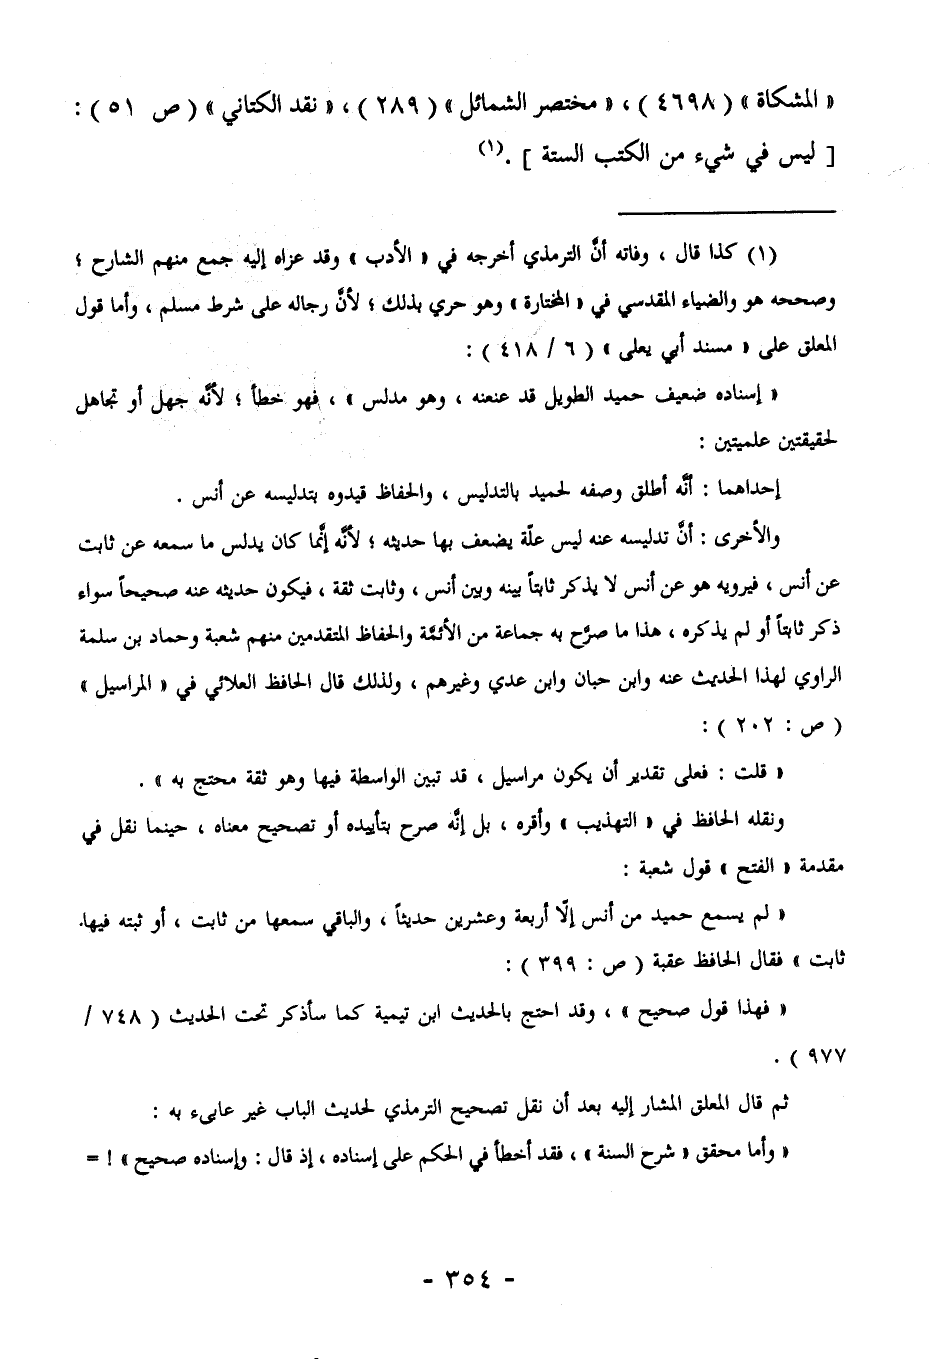 « المشكاة » ( ٤٦٩٨ ) ، « مختصر الشمائل » ( ٢٨٩ ) ، « نقد الكتاني » ( ص ٥١ ) :
[ ليس في شيء من الكتب الستة ] .(١)
(١) كذا قال ، وفاته أنَّ الترمذي أخرجه في « الأدب » وقد عزاه إليه جمع منهم الشارح ؛
وصححه هو والضياء المقدسي في « المختارة » وهو حري بذلك ؛ لأنَّ رجاله على شرط مسلم ، وأما قول
المعلق على « مسند أبي يعلى » ( ٦ / ٤١٨ ) :
« إسناده ضعيف حميد الطويل قد عنعنه ، وهو مدلس » ، فهو خطأ ؛ لأنَّه جهل أو تجاهل
لحقيقتين علميتين :
إحداهما : أنَّه أطلق وصفه لحميد بالتدليس ، والحفاظ قيدوه بتدليسه عن أنس .
والأخرى : أنَّ تدليسه عنه ليس علّة يضعف بها حديثه ؛ لأنَّه إنَّما كان يدلس ما سمعه عن ثابت
عن أنس ، فيرويه هو عن أنس لا يذكر ثابتاً بينه وبين أنس ، وثابت ثقة ، فيكون حديثه عنه صحيحاً سواء
ذكر ثابتاً أو لم يذكره ، هذا ما صرَّح به جماعة من الأئمَّة والحفاظ المتقدمين منهم شعبة وحماد بن سلمة
الراوي لهذا الحديث عنه وابن حبان وابن عدي وغيرهم ، ولذلك قال الحافظ العلائي في « المراسيل »
( ص : ٢٠٢ ) :
« قلت : فعلى تقدير أن يكون مراسيل ، قد تبين الواسطة فيها وهو ثقة محتج به » .
ونقله الحافظ في « التهذيب » وأقره ، بل إنَّه صرح بتأييده أو تصحيح معناه ، حينما نقل في
مقدمة « الفتح » قول شعبة :
« لم يسمع حميد من أنس إلّا أربعة وعشرين حديثاً ، والباقي سمعها من ثابت ، أو ثبته فيها.
ثابت » فقال الحافظ عقبة ( ص : ٣٩٩ ) :
« فهذا قول صحيح » ، وقد احتج بالحديث ابن تيمية كما سأذكر تحت الحديث ( ٧٤٨ /
٩٧٧ ) .
ثم قال المعلق المشار إليه بعد أن نقل تصحيح الترمذي لحديث الباب غير عابىء به :
« وأما محقق « شرح السنة » ، فقد أخطأ في الحكم على إسناده ، إذ قال : وإسناده صحيح » ! =
- ٣٥٤ -